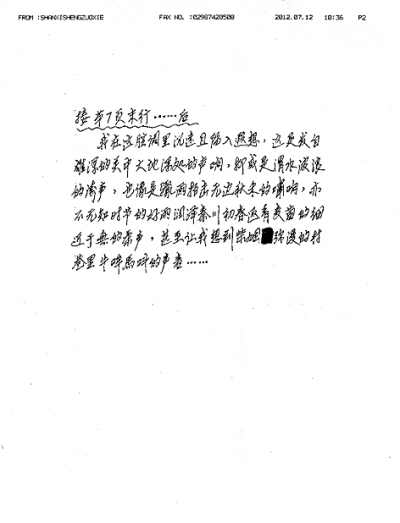 FROM :SHANXISHENGZUOXIE FAX NO. :02987420508 2012.07.12 10:36 P2
接第7页末行……后
我在这腔调里沉迷且陷入遐想，这是发自
雄浑的关中大地深处的声响，抑或是渭水波浪
的涛声，也像是骤雨拍击无边秋禾的啸响，亦
不无知时节的好雨润泽秦川初春返青麦苗的细
近于无的柔声，甚至让我想到柴烟弥漫的村
巷里牛哞马叫的声音……